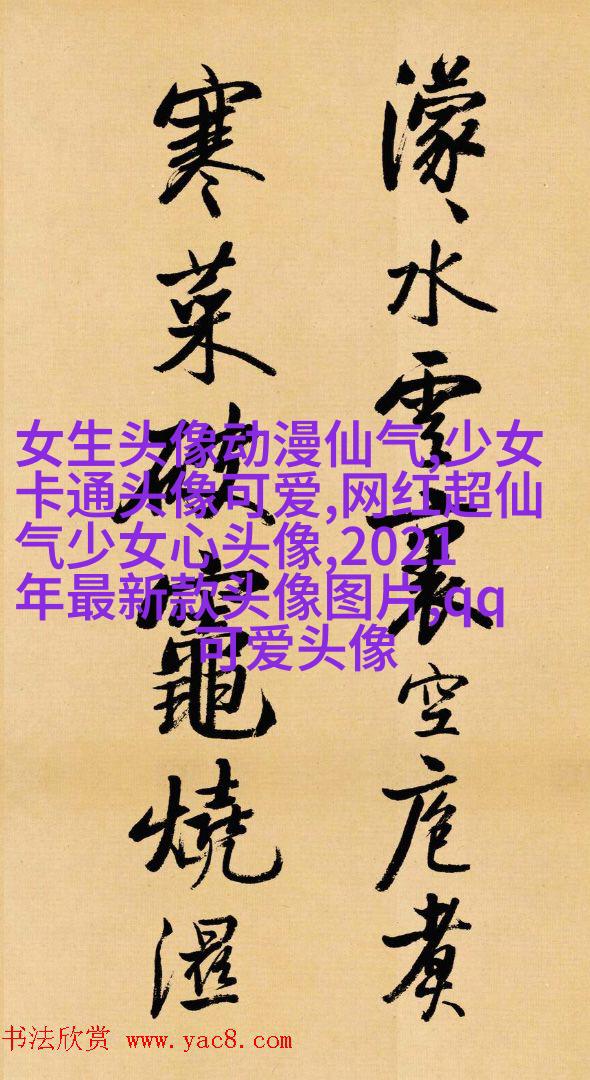 濛〻水雲裏空庖煮
寒菜破竈燒濕
女生头像动漫仙气,少女
卡通头像可爱,网红超仙
气少女心头像,2021
年最新款头像图片,qq
可爱头像
书法欣赏 www.yac8.com